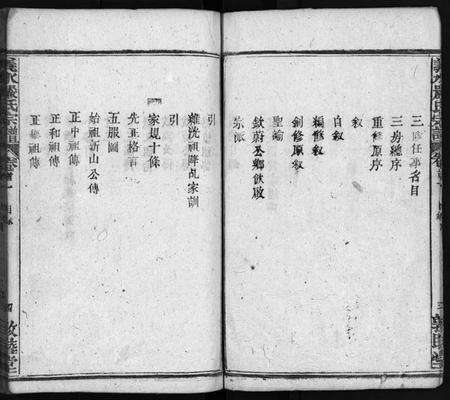 三房任事名目
三房總序
重修原序
叙
自叙
續修叙
創修原叙
聖諭
欽蔚公鄉飲啟
引
雞洗祖降乩家訓
引
家規十條
先正格言
五服圖
始祖新山公傳
正中祖傳
正和祖傳
正祖傳
義水嚴氏宗譜
卷首
目錄
四
敦睦堂